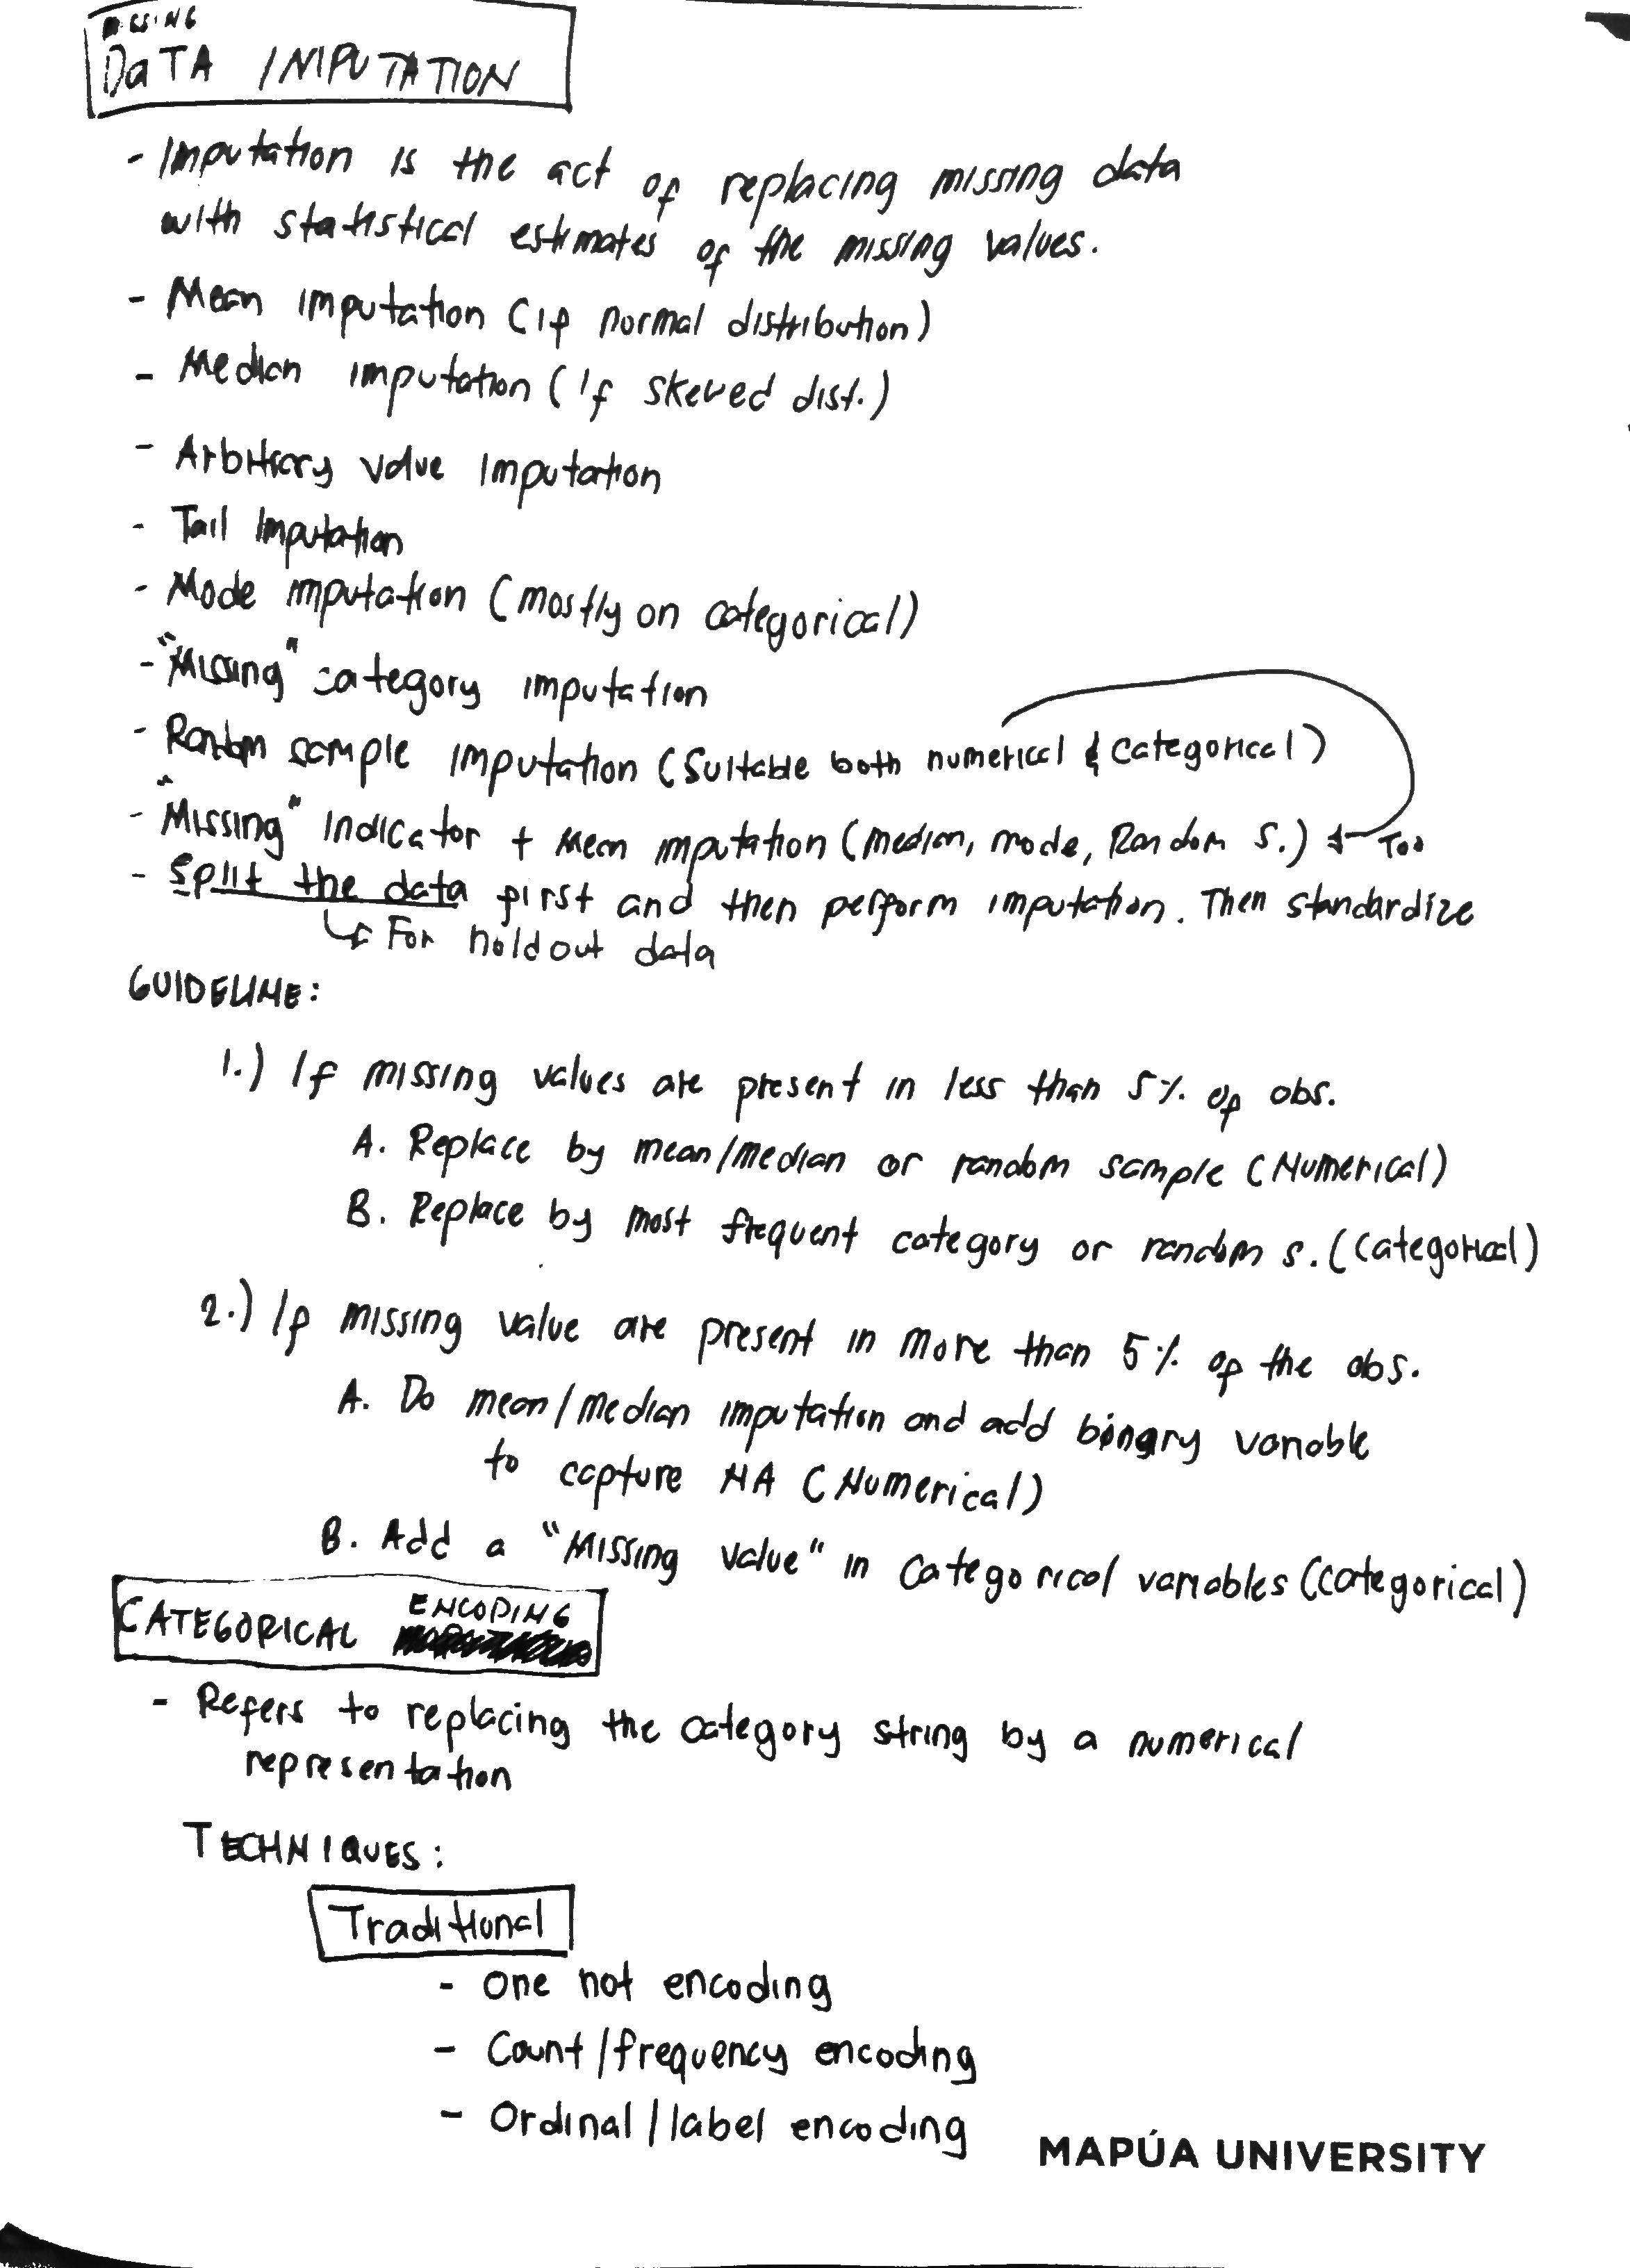 MISSING
DaTA IMPUTATION
- Imputation is the act of replacing missing data
with statistical estimates of the missing values.
- Mean imputation (if normal distribution)
- Median imputation (if skewed dist.)
- Arbitrary value imputation
- Tail Imputation
- Mode imputation (mostly on categorical)
- "Missing" category imputation
- Random sample imputation (Suitable both numerical & categorical)
- "Missing" indicator + Mean imputation (median, mode, Random S.) Too
- Split the data first and then perform imputation. Then standardize
For holdout data
GUIDELINE:
1.) If missing values are present in less than 5% of obs.
A. Replace by mean/median or random sample (Numerical)
B. Replace by most frequent category or random s. (categorical)
2.) If missing value are present in more than 5% of the obs.
A. Do mean/median imputation and add binary variable
to capture NA (Numerical)
B. Add a "Missing value" in categorical variables (categorical)
CATEGORICAL ENCODING
- Refers to replacing the category string by a numerical
representation
TECHNIQUES:
Traditional
- One hot encoding
- Count/frequency encoding
- Ordinal/label encoding
MAPÚA UNIVERSITY